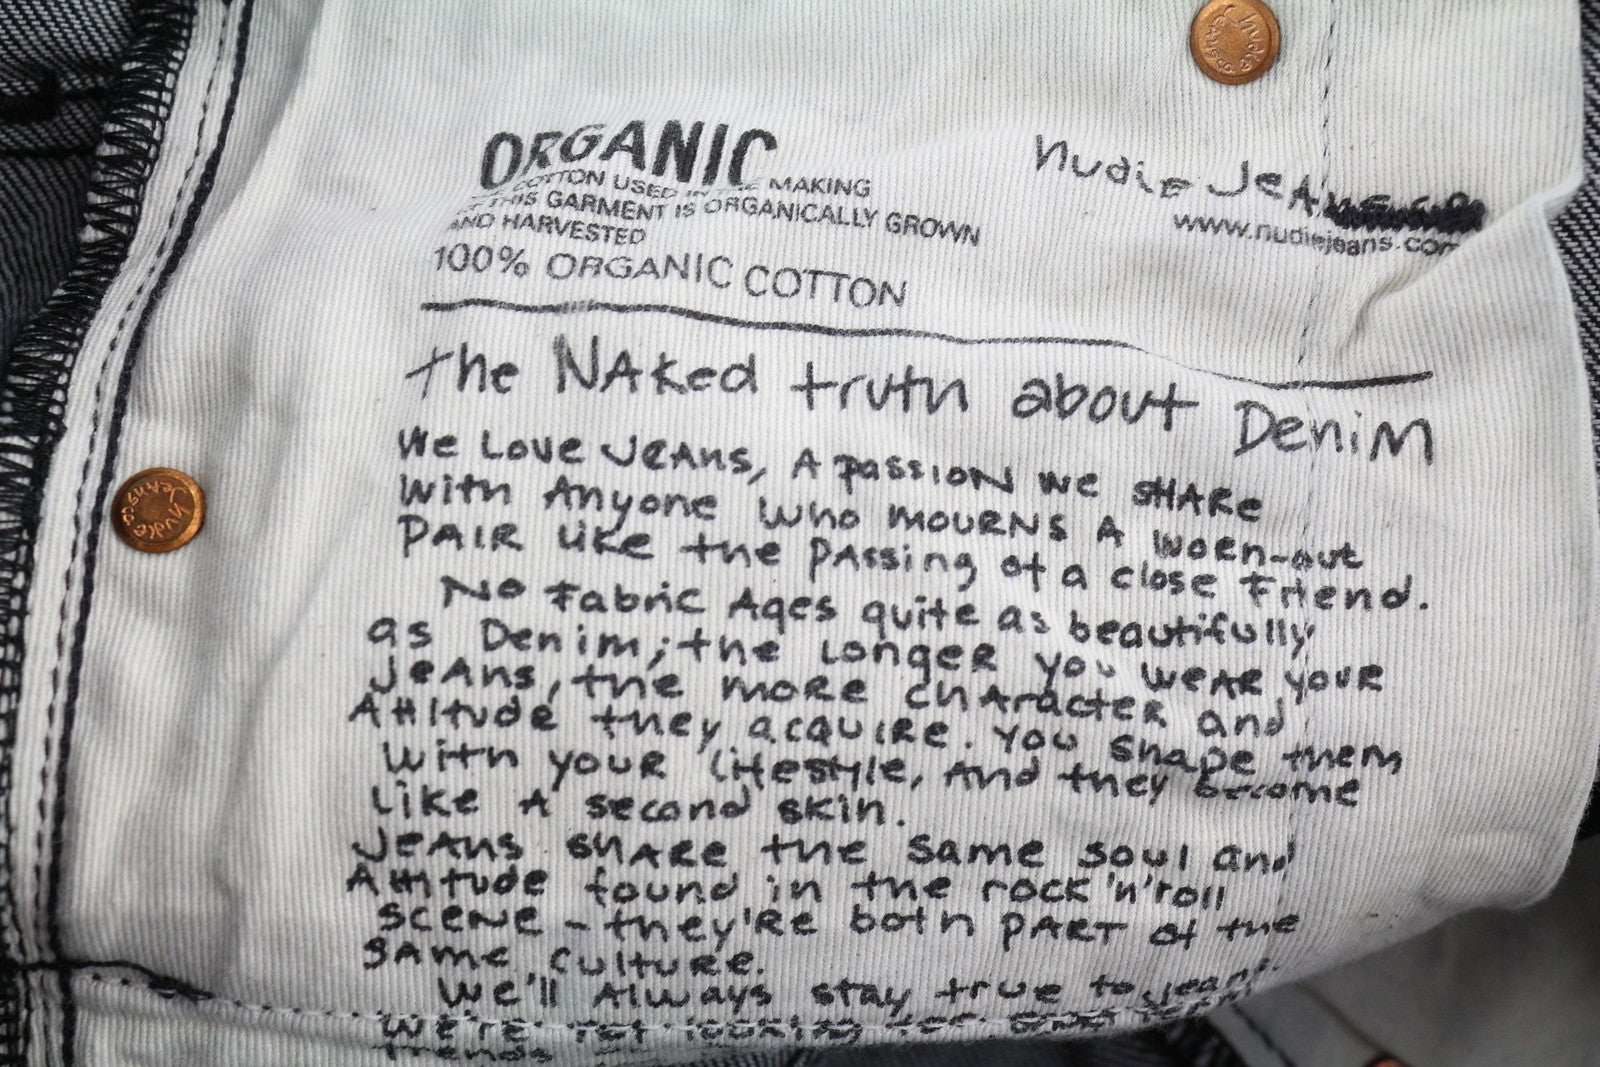 ORGANIC
COTTON USED IN THE MAKING
OF THIS GARMENT IS ORGANICALLY GROWN
AND HARVESTED
100% ORGANIC COTTON
Nudie Jeans
www.nudiejeans.com
the Naked truth about Denim
We Love Jeans, A passion we share
with Anyone who mourns A worn-out
pair like the passing of a close friend.
No fabric Ages quite as beautifully
as Denim; the longer you wear your
Jeans, the more character and
Attitude they acquire. You shape them
with your lifestyle, And they become
like A second skin.
Jeans share the same soul and
Attitude found in the rock'n'roll
scene - they're both part of the
same culture.
We'll Always stay true to jeans.
We're not looking for
trends
Nudie
Jeans co.
Nudie
Jeans co.